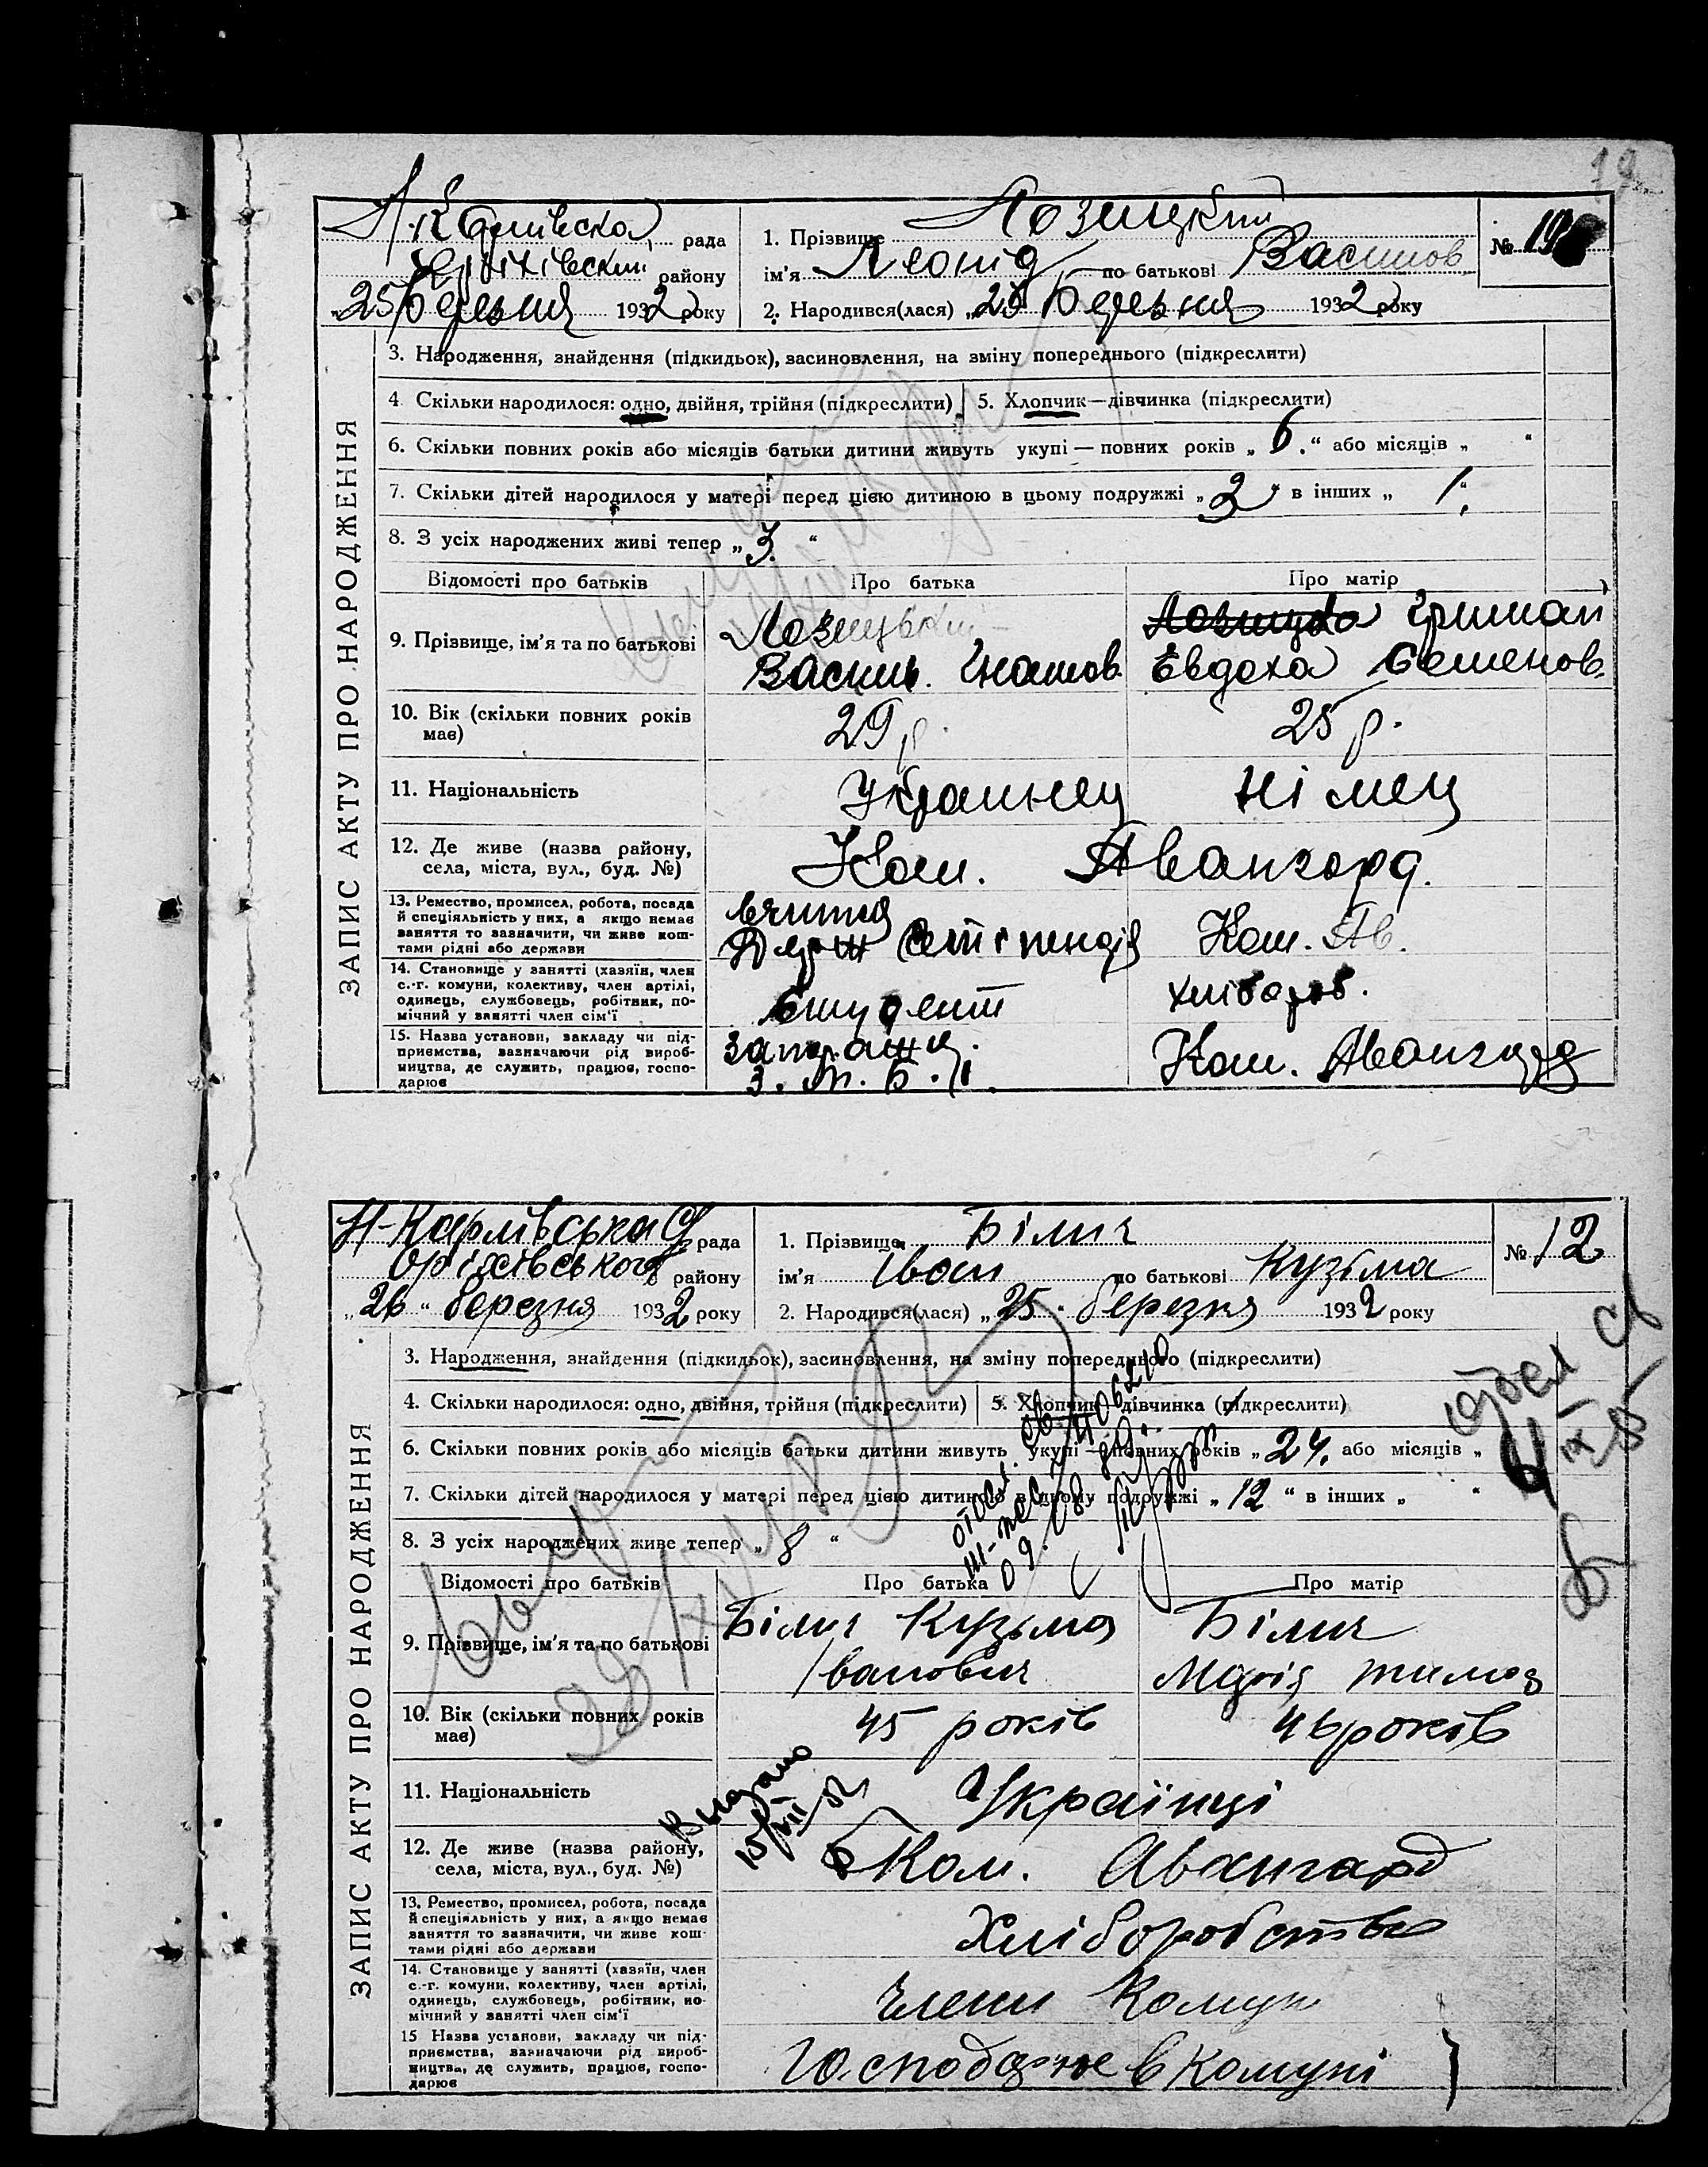 19
Н. Карлівска рада
Оріхівский району
"25" березня 1932 року
1. Прізвище Лозицкий
ім'я Леонід по батькові Васильов
2. Народився(лася) "25" березня 1932 року
№
ЗАПИС АКТУ ПРО НАРОДЖЕННЯ
3. Народження, знайдення (підкидьок), засиновлення, на зміну попереднього (підкреслити)
4. Скільки народилося: одно, двійня, трійня (підкреслити) 5. Хлопчик—дівчинка (підкреслити)
6. Скільки повних років або місяців батьки дитини живуть укупі — повних років „ 6. “ або місяців „ “
7. Скільки дітей народилося у матері перед цією дитиною в цьому подружжі „ 2 “ в інших „ 1 “
8. З усіх народжених живі тепер „ 3. “
Відомості про батьків Про батька Про матір
9. Прізвище, ім'я та по батькові
Лозицький
Василь Гнатов.
Лозицька Гришай
Евдоха Семенов.
10. Вік (скільки повних років має) 29 р. 25 р.
11. Національність Украинец Німец
12. Де живе (назва району, села, міста, вул., буд. №) Ком. Авангард.
13. Ремество, промисел, робота, посада й спеціяльність у них, а якщо немає заняття то зазначити, чи живе коштами рідні або держави
Держ Стіпендія Ком. Ав.
14. Становище у занятті (хазяїн, член с.-г. комуни, колективу, член артілі, одинець, службовець, робітник, помічний у занятті член сім'ї
студент хлібороб.
15. Назва установи, закладу чи підприємства, зазначаючи рід виробництва, де служить, працює, господарює
Ком. Авангард
Н-Карлівська рада
Оріхівського району
„26“ березня 1932 року
1. Прізвище Білич
ім'я Іван по батькові Кузьма
2. Народився(лася) „25“ березня 1932 року
№ 12
ЗАПИС АКТУ ПРО НАРОДЖЕННЯ
3. Народження, знайдення (підкидьок), засиновлення, на зміну попереднього (підкреслити)
4. Скільки народилося: одно, двійня, трійня (підкреслити) 5. Хлопчик—дівчинка (підкреслити)
6. Скільки повних років або місяців батьки дитини живуть укупі — повних років „ 24. або місяців „
7. Скільки дітей народилося у матері перед цією дитиною в цьому подружжі „ 12 “ в інших „ “
8. З усіх народжених живе тепер „ 8 “
Відомості про батьків Про батька Про матір
9. Прізвище, ім'я та по батькові
Білич Кузьма
Іванович
Білич
Марія Тимоф
10. Вік (скільки повних років має) 45 років 46 років
11. Національність Українці
Видано
12. Де живе (назва району, села, міста, вул., буд. №) Ком. Авангард
13. Ремество, промисел, робота, посада й спеціяльність у них, а якщо немає заняття то зазначити, чи живе коштами рідні або держави
Хліборобство
14. Становище у занятті (хазяїн, член с.-г. комуни, колективу, член артілі, одинець, службовець, робітник, помічний у занятті член сім'ї
Члени Комун
15 Назва установи, закладу чи підприємства, зазначаючи рід виробництва, де служить, працює, господарює
Господарює в комуні